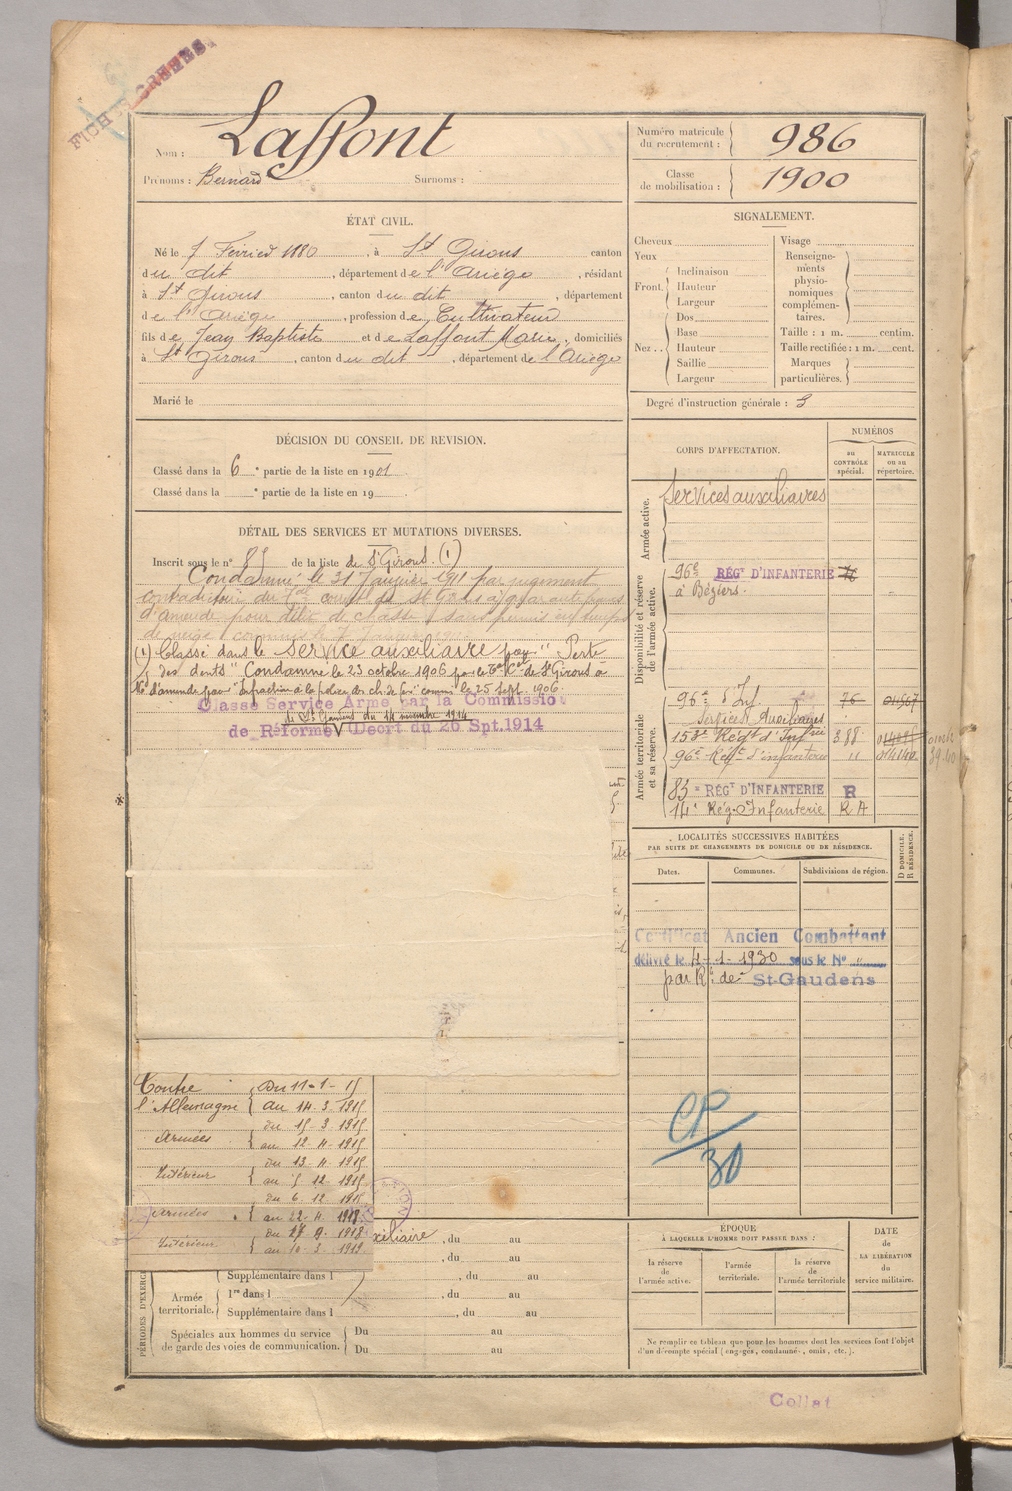 FICH
Nom : Laffont
Prénoms : Bernard Surnoms :
Numéro matricule du recrutement : 986
Classe de mobilisation : 1900
ÉTAT CIVIL.
Né le 7 Février 1880, à St Girons canton
du dit, département de l'Ariège, résidant
à St Girons, canton du dit, département
de l'Ariège, profession de Cultivateur
fils de Jean Baptiste et de Laffont Marie, domiciliés
à St Girons, canton du dit, département de l'Ariège
Marié le
SIGNALEMENT.
Cheveux
Yeux
Front. Inclinaison
Hauteur
Largeur
Nez .. Dos
Base
Hauteur
Saillie
Largeur
Visage
Renseignements physionomiques complémentaires.
Taille : 1 m. centim.
Taille rectifiée : 1 m. cent.
Marques particulières.
Degré d'instruction générale : 3
DÉCISION DU CONSEIL DE REVISION.
Classé dans la 6e partie de la liste en 1901
Classé dans la e partie de la liste en 19
DÉTAIL DES SERVICES ET MUTATIONS DIVERSES.
Inscrit sous le n° 85 de la liste de St Girons. (1)
Condamné le 31 Janvier 1911 par jugement
contradictoire du correct de St Girons à quarante francs
d'amende pour délit de chasse sans permis en temps
de neige commis le 7
(1) Classé dans le Service auxiliaire pour " Perte
des dents " Condamné le 23 octobre 1906 par le de St Girons à
16f d'amende pour Infraction à la police des ch. de fer commis le 25 Sept. 1906.
Classé Service Armé par la Commission
de St Gaudens du 14 novembre 1914
de Réforme Décrt du 26 Spt.1914
CORPS D'AFFECTATION.
NUMÉROS
au CONTRÔLE spécial.
MATRICULE ou au répertoire.
Armée active.
Services auxiliaires
Disponibilité et réserve de l'armée active.
96e RÉGT D'INFANTERIE
à Béziers.
Armée territoriale et sa réserve.
96e d'Inf 76
Services Auxiliaires
153e Régt d'Infrie 388
96e Régt d'infanterie "
83e RÉGT D'INFANTERIE R
14e Rég. d'Infanterie R A
LOCALITÉS SUCCESSIVES HABITÉES
PAR SUITE DE CHANGEMENTS DE DOMICILE OU DE RÉSIDENCE.
Dates. Communes. Subdivisions de région.
D DOMICILE. R RÉSIDENCE.
Certificat Ancien Combattant
délivré le 4-1-1930 sous le N° "
par Rt de St-Gaudens
CP/30
Contre Du 11-1-15
l'Allemagne au 14. 3. 1915
Armées du 15. 3. 1915
au 12. 4. 1915
Intérieur du 13. 4. 1915
au 5. 12. 1915
Armées du 6. 12. 1915
au 22. 4. 1918
Intérieur Du 1918
au 10. 3. 1919
xiliaire, du au
, du au
Supplémentaire dans l , du au
PÉRIODES D'EXERC
Armée territoriale. 1re dans l , du au
Supplémentaire dans l , du au
Spéciales aux hommes du service de garde des voies de communication. Du au
Du au
ÉPOQUE
À LAQUELLE L'HOMME DOIT PASSER DANS :
la réserve de l'armée active.
l'armée territoriale.
la réserve de l'armée territoriale
DATE de LA LIBÉRATION du service militaire.
Ne remplir ce tableau que pour les hommes dont les services font l'objet
d'un décompte spécial (engagés, condamnés, omis, etc.).
Collat